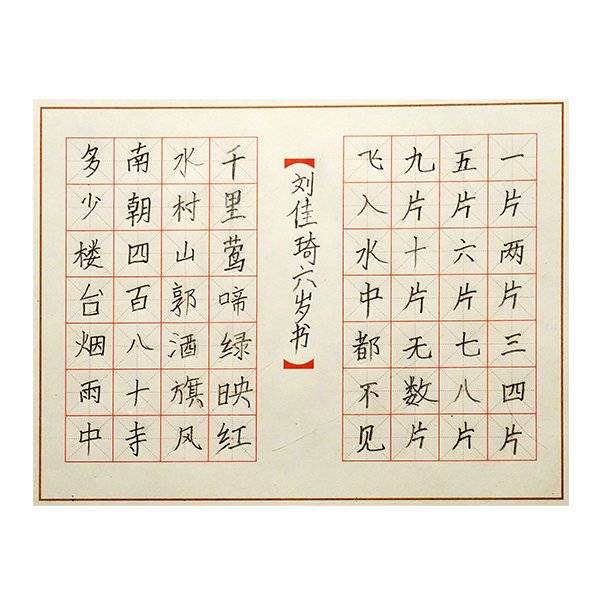 一片两片三四片
五片六片七八片
九片十片无数片
飞入水中都不见
【刘佳琦六岁书】
千里莺啼绿映红
水村山郭酒旗风
南朝四百八十寺
多少楼台烟雨中